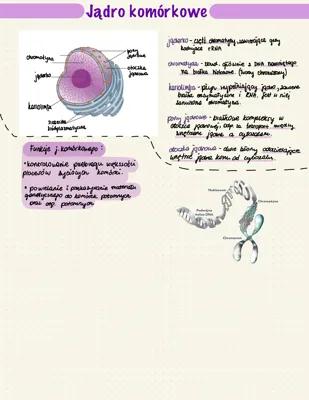 Jądro komórkowe
chromatyna
pory jądrowe
otoczka jądrowa
jąderko
kariolimfa
siateczka śródplazmatyczna
jąderko - część chromatyny, zawierająca geny
kodujące rRNA
chromatyna - zbud. głównie z DNA nawiniętego
na białka histonowe. (tworzy chromosomy)
kariolimfa - płyn wypełniający jądro, zawiera
białka enzymatyczne i RNA. Jest w niej
zawieszona chromatyna.
pory jądrowe - białkowe kompleksy w
otoczce jądrowej; odp. za transport między
wnętrzem jądra a cytozolem.
otoczka jądrowa - dwie błony oddzielające
wnętrze jądra kom. od cytozolu.
Funkcje j. komórkowego:
• kontrolowanie przebiegu większości
procesów życiowych komórki.
• powielanie i przekazywanie materiału
genetycznego do komórek potomnych
oraz org. potomnych
Nukleosom
Chromatyna
Podwójna
helisa DNA
Chromosom